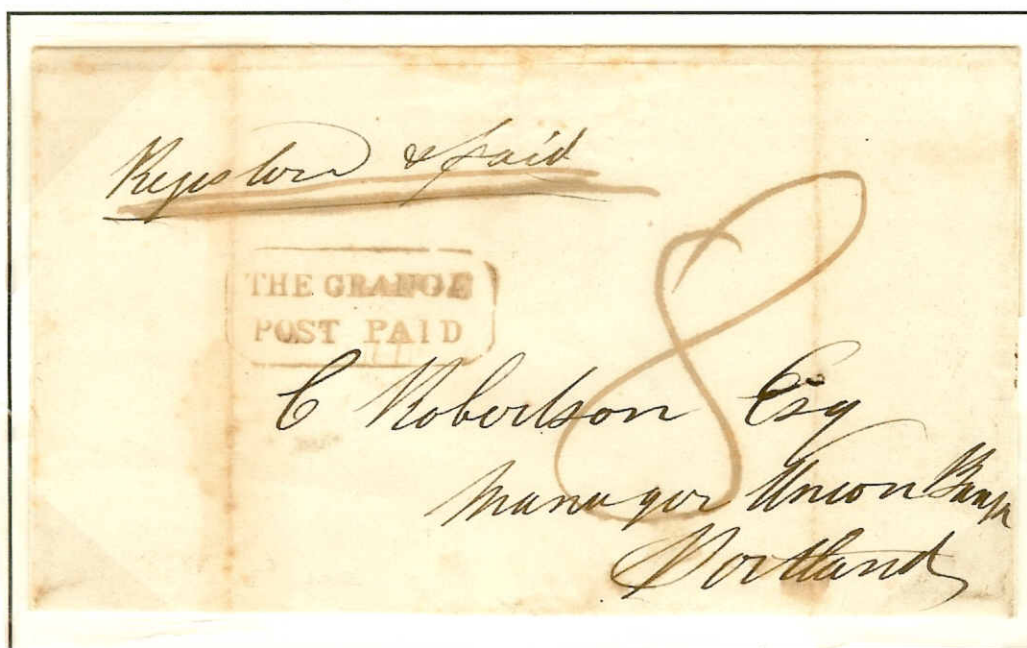 Register & paid
THE GRANGE
POST PAID
8
C Robertson Esq
Manager Union Bank
Portland